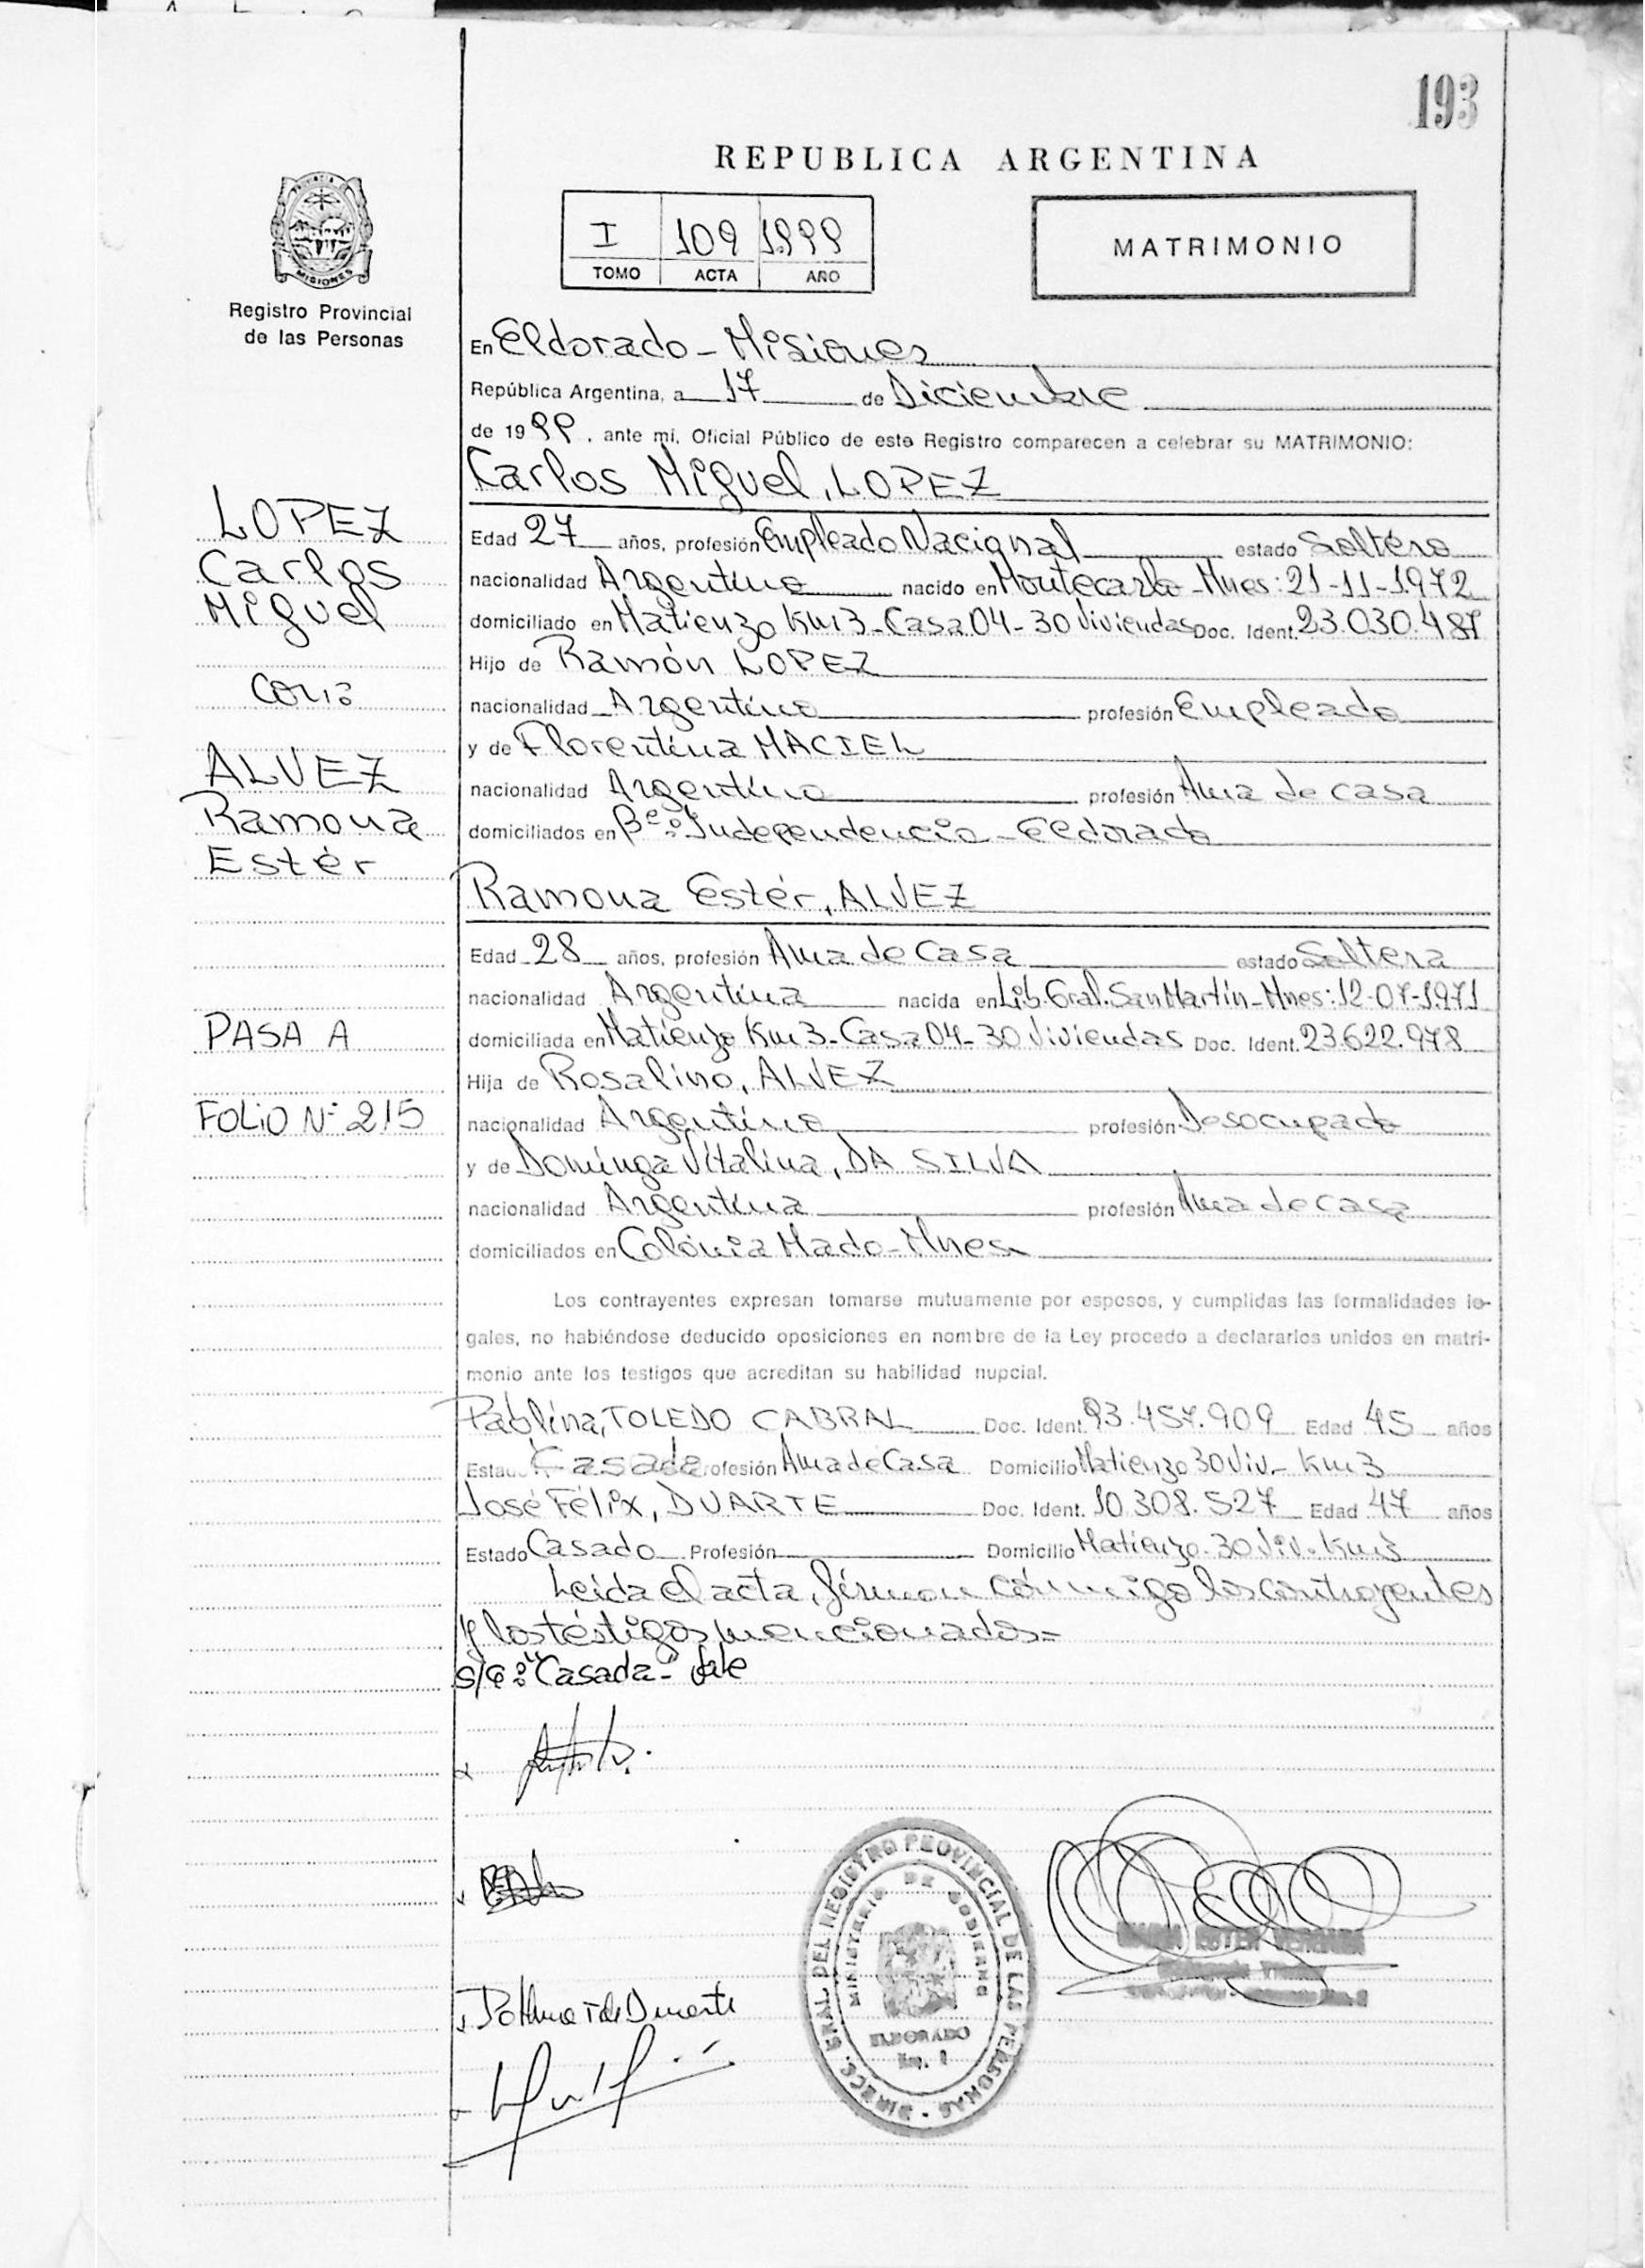 193
REPUBLICA ARGENTINA
I 109 1999
TOMO ACTA AÑO
MATRIMONIO
MISIONES
Registro Provincial
de las Personas
LOPEZ
Carlos
Miguel
con
ALVEZ
Ramona
Estér
PASA A
FOLIO Nº 215
En Eldorado - Misiones
República Argentina, a 17 de Diciembre
de 1999, ante mí, Oficial Público de este Registro comparecen a celebrar su MATRIMONIO:
Carlos Miguel, LOPEZ
Edad 27 años, profesión Empleado Nacional estado Soltero
nacionalidad Argentino nacido en Montecarlo - Mnes: 21-11-1972
domiciliado en Matienzo Km 3 - Casa 04 - 30 Viviendas Doc. Ident. 23.030.487
Hijo de Ramón LOPEZ
nacionalidad Argentino profesión Empleado
y de Florentina MACIEL
nacionalidad Argentino profesión Ama de casa
domiciliados en Bº: Independencia - Eldorado
Ramona Estér, ALVEZ
Edad 28 años, profesión Ama de Casa estado Soltera
nacionalidad Argentina nacida en Lib. Gral. San Martín - Mnes: 12-07-1971
domiciliada en Matienzo Km 3 - Casa 04 - 30 Viviendas Doc. Ident. 23.622.978
Hija de Rosalino, ALVEZ
nacionalidad Argentino profesión Desocupado
y de Dominga Vitalina, DA SILVA
nacionalidad Argentina profesión Ama de casa
domiciliados en Colonia Mado - Mnes
Los contrayentes expresan tomarse mutuamente por esposos, y cumplidas las formalidades le-
gales, no habiéndose deducido oposiciones en nombre de la Ley procedo a declararlos unidos en matri-
monio ante los testigos que acreditan su habilidad nupcial.
Pablina, TOLEDO CABRAL Doc. Ident. 93.457.909 Edad 45 años
Estado Casada profesión Ama de Casa Domicilio Matienzo 30 Viv. - Km 3
José Félix, DUARTE Doc. Ident. 10.308.527 Edad 47 años
Estado Casado Profesión Domicilio Matienzo - 30 Viv. Km 3
Leida el acta, firman conmigo los contrayentes
y los téstigos mencionados=
S/R: "Casada-" Vale
DIRECC. GRAL. DEL REGISTRO PROVINCIAL DE LAS PERSONAS
MINISTERIO DE GOBIERNO
ELDORADO